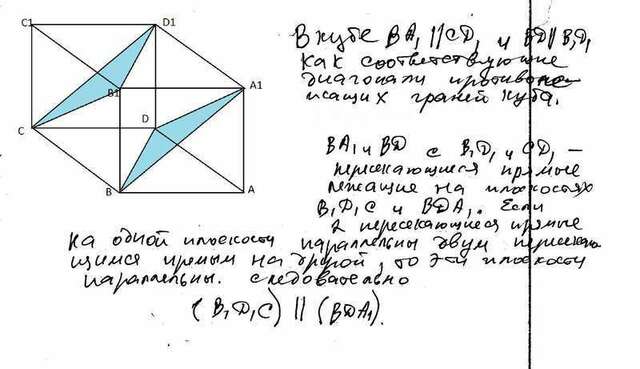 C1
D1
B1
A1
C
D
B
A
В кубе BA₁ || CD₁ и BD || B₁D₁
как соответствующие
диагонали противопо-
лежащих граней куба.
BA₁ и BD с B₁D₁ и CD₁ –
пересекающиеся прямые
лежащие на плоскостях
B₁D₁C и BDA₁. Если
2 пересекающиеся прямые
на одной плоскости параллельны двум пересекаю
щимся прямым на другой, то эти плоскости
параллельны. следовательно
(B₁D₁C) || (BDA₁).